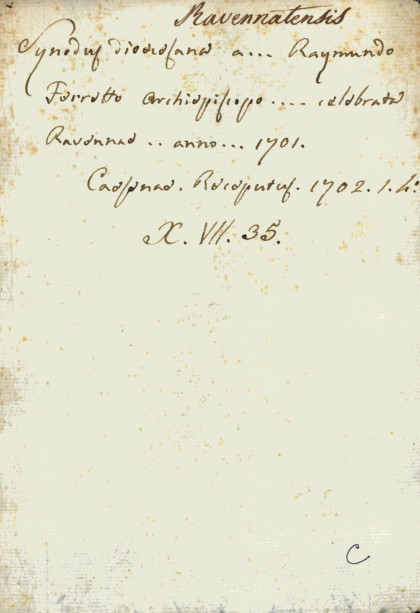 Ravennatensis
Synodus dioecesana a... Raymundo
Ferretto Archiepiscopo .... celebrata
Ravennae .. anno... 1701.
Caesenae. Receputus. 1702. 1. 4:
X. VII. 35.
C